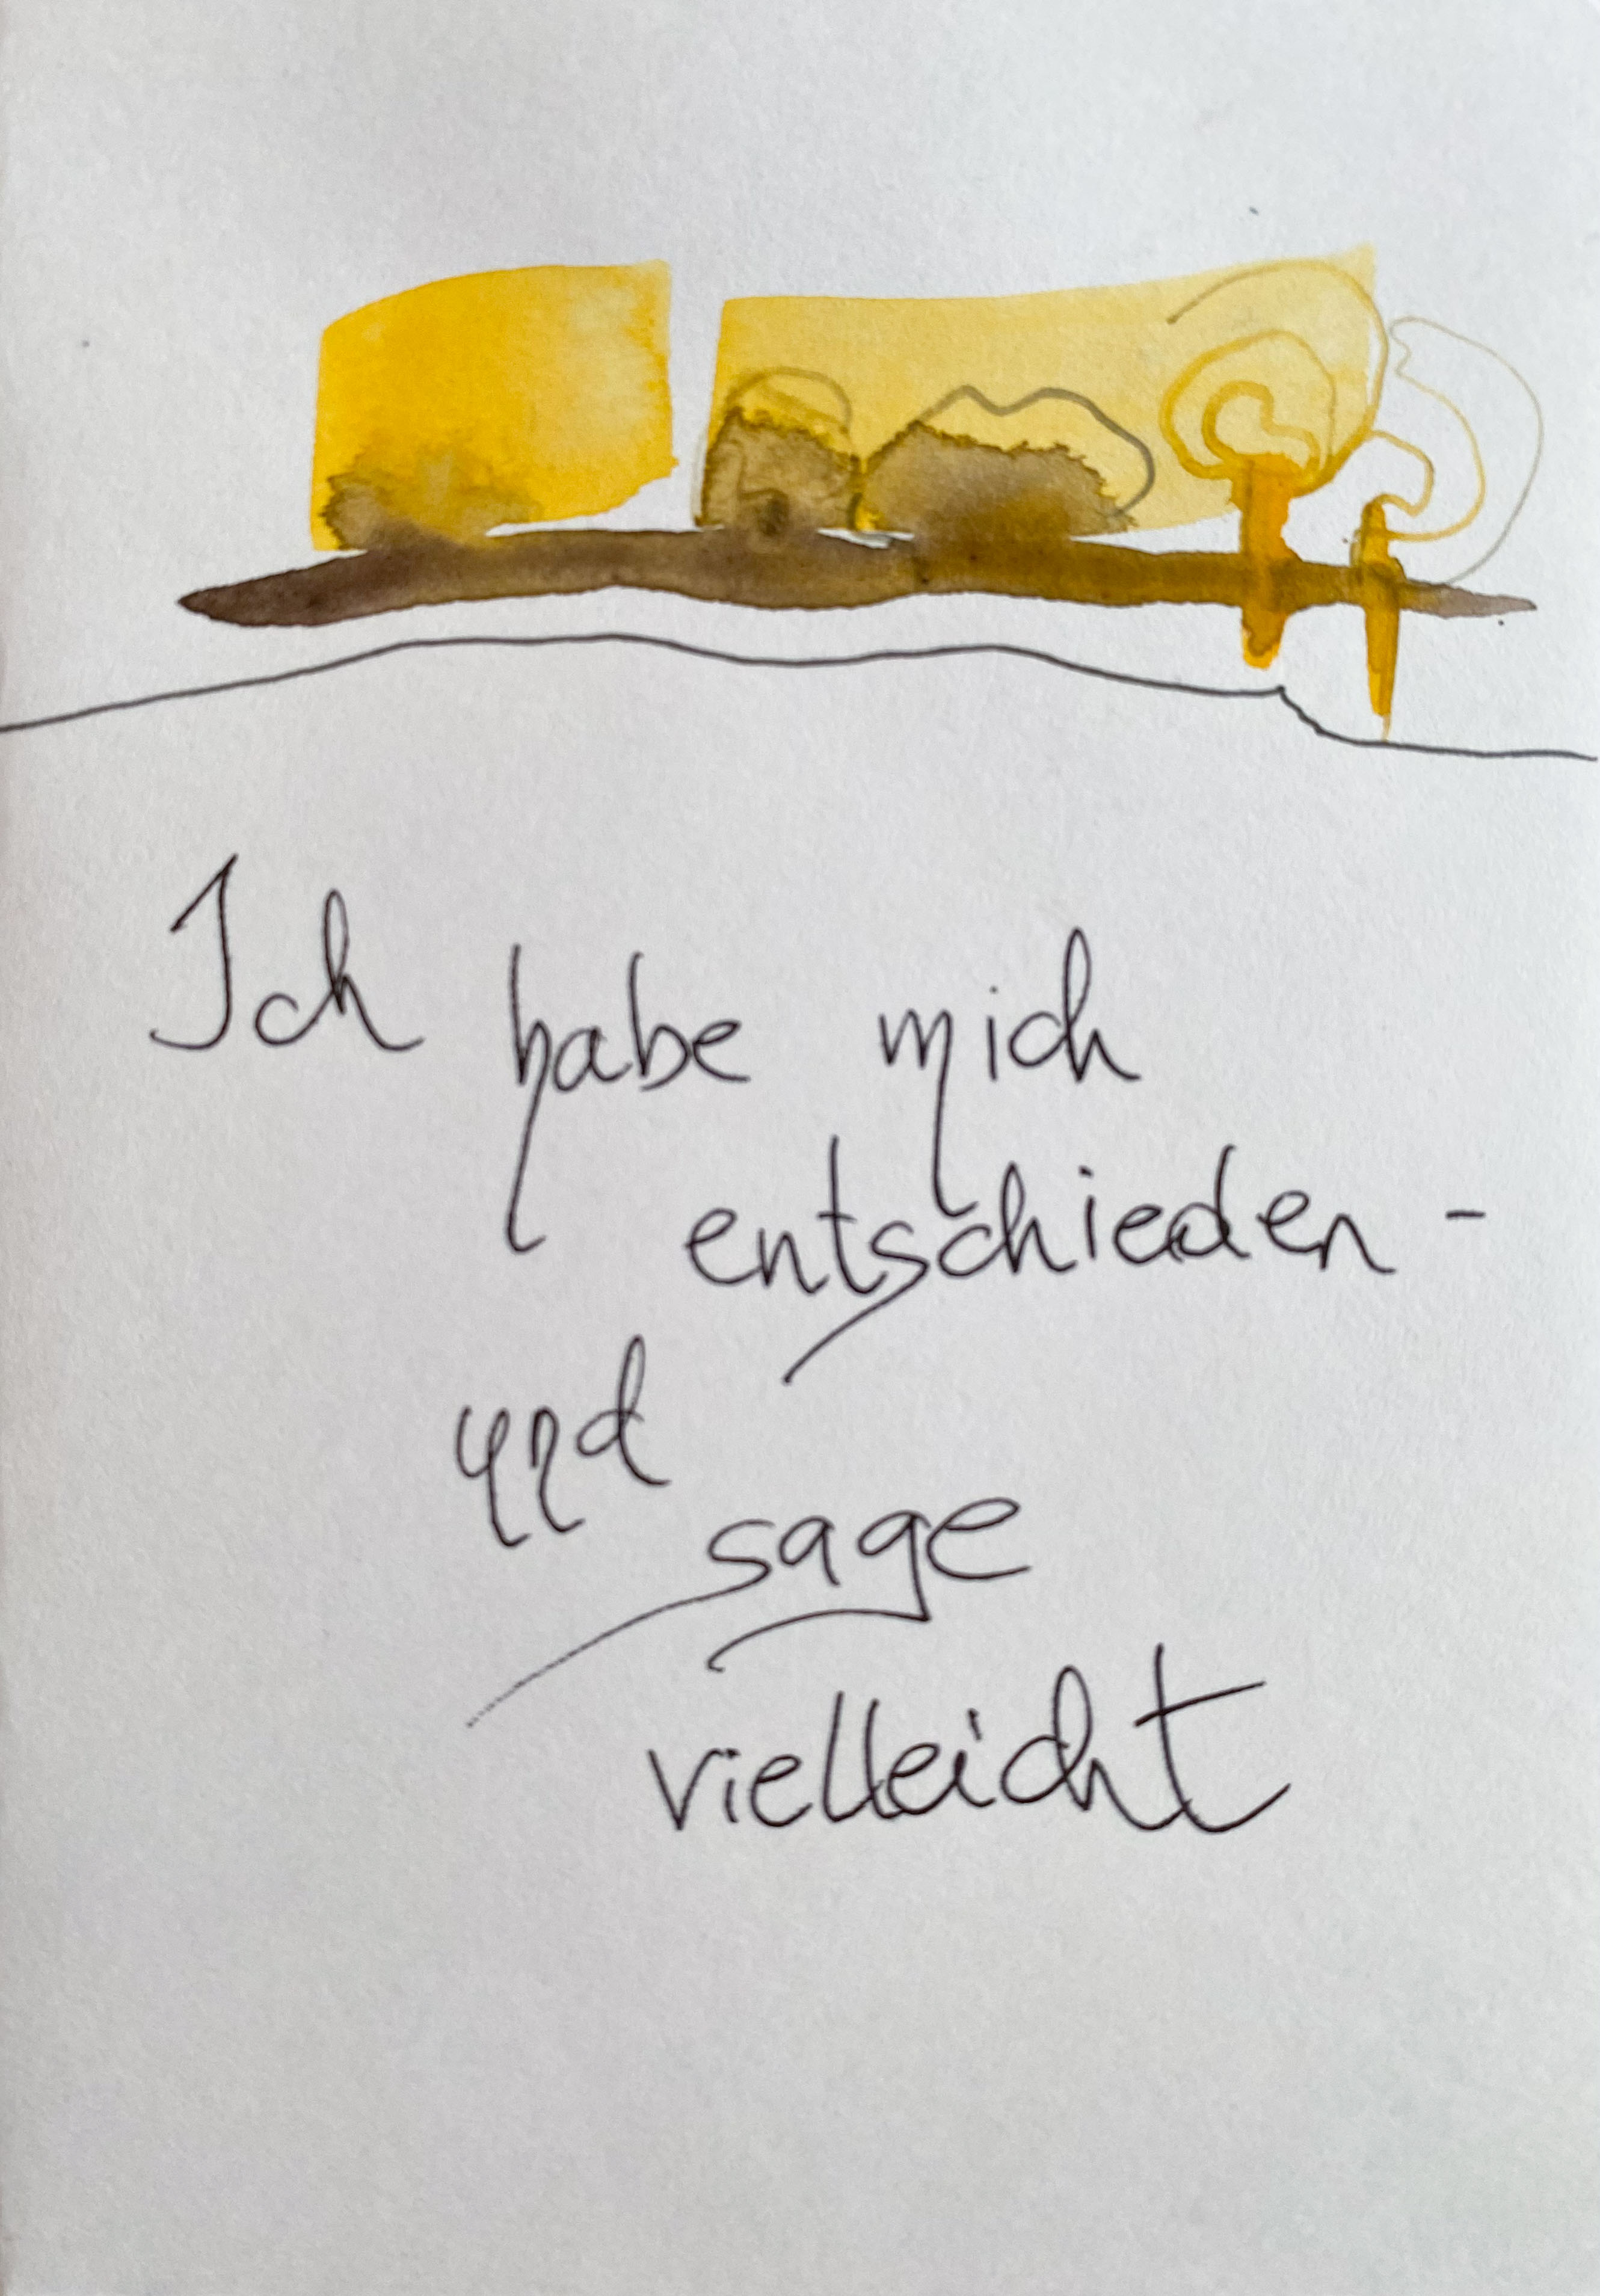 Ich habe mich
entschieden -
und
sage
vielleicht